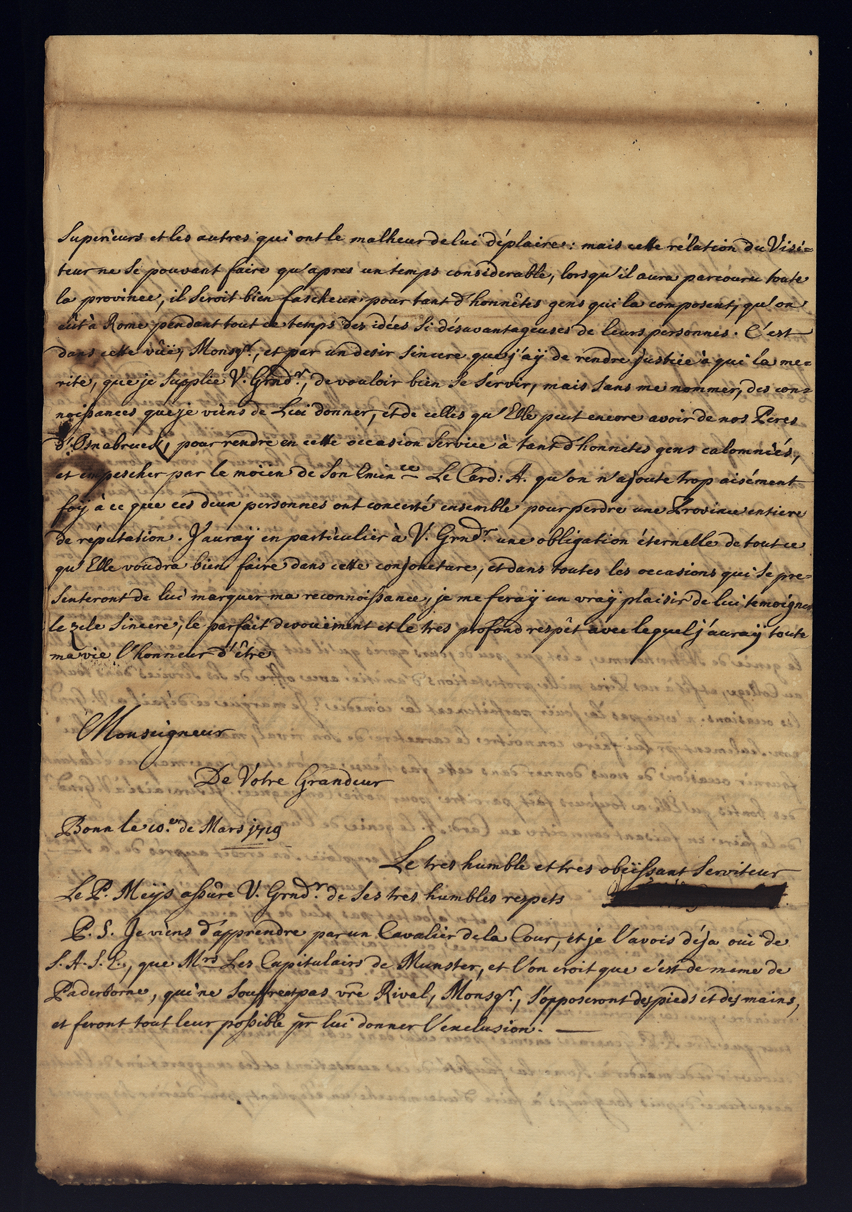 Superieurs et les autres qui ont le malheur de lui déplaire: mais cette rélation du Visi=
teur ne se pouvent faire qu'apres un temps considerable, lorsqu'il aura parcouru toute
la province, il seroit bien fascheux pour tant d'honnêtes gens qui la composent, qu'on
eût à Rome pendant tout ce temps des idées si désavantageuses de leurs personnes. C'est
dans cette vüe, Monsgr., et par un desir sincere que j'aÿ de rendre justice à qui la me=
rite, que je supplie V. Grndr., de vouloir bien se servir, mais sans me nommer, des con=
noissances que je viens de Lui donner, et de celles qu'Elle peut encore avoir de nos Peres
d'Osnabruck, pour rendre en cette occasion service à tant d'honnetes gens calomniés,
et empescher par le moien de Son Emin.ce Le Card: A. qu'on n'ajoute trop aisément
foÿ à ce que ces deux personnes ont concerté ensemble pour perdre une Province entiere
de réputation. J'auraÿ en particulier à V. Grndr. une obligation éternelle de tout ce
qu'Elle voudra bien faire dans cette conjoncture, et dans toutes les occasions qui se pre=
senteront de lui marquer ma reconnoissance, je me feraÿ un vraÿ plaisir de lui temoigner
le zele sincere, le parfait devouëment et le tres profond respêt avec lequel j'auraÿ toute
ma vie l'honneur d'être
Monseigneur
De Votre Grandeur
Bonn le 10.en de Mars 1719
Le tres humble et tres obeïssant Serviteur
Le P. Meÿs assûre V. Grndr. de ses tres humbles respets
P. S. Je viens d'apprendre par un Cavalier de la Cour, et je l'avois déja oui de
S. A. S. E., que Mrs Les Capitulairs de Munster, et l'on croit que c'est de meme de
Paderborne, qui ne souffrent pas vre Rival, Monsgr., s'opposeront des pieds et des mains,
et feront tout leur possible pr lui donner l'exclusion. —